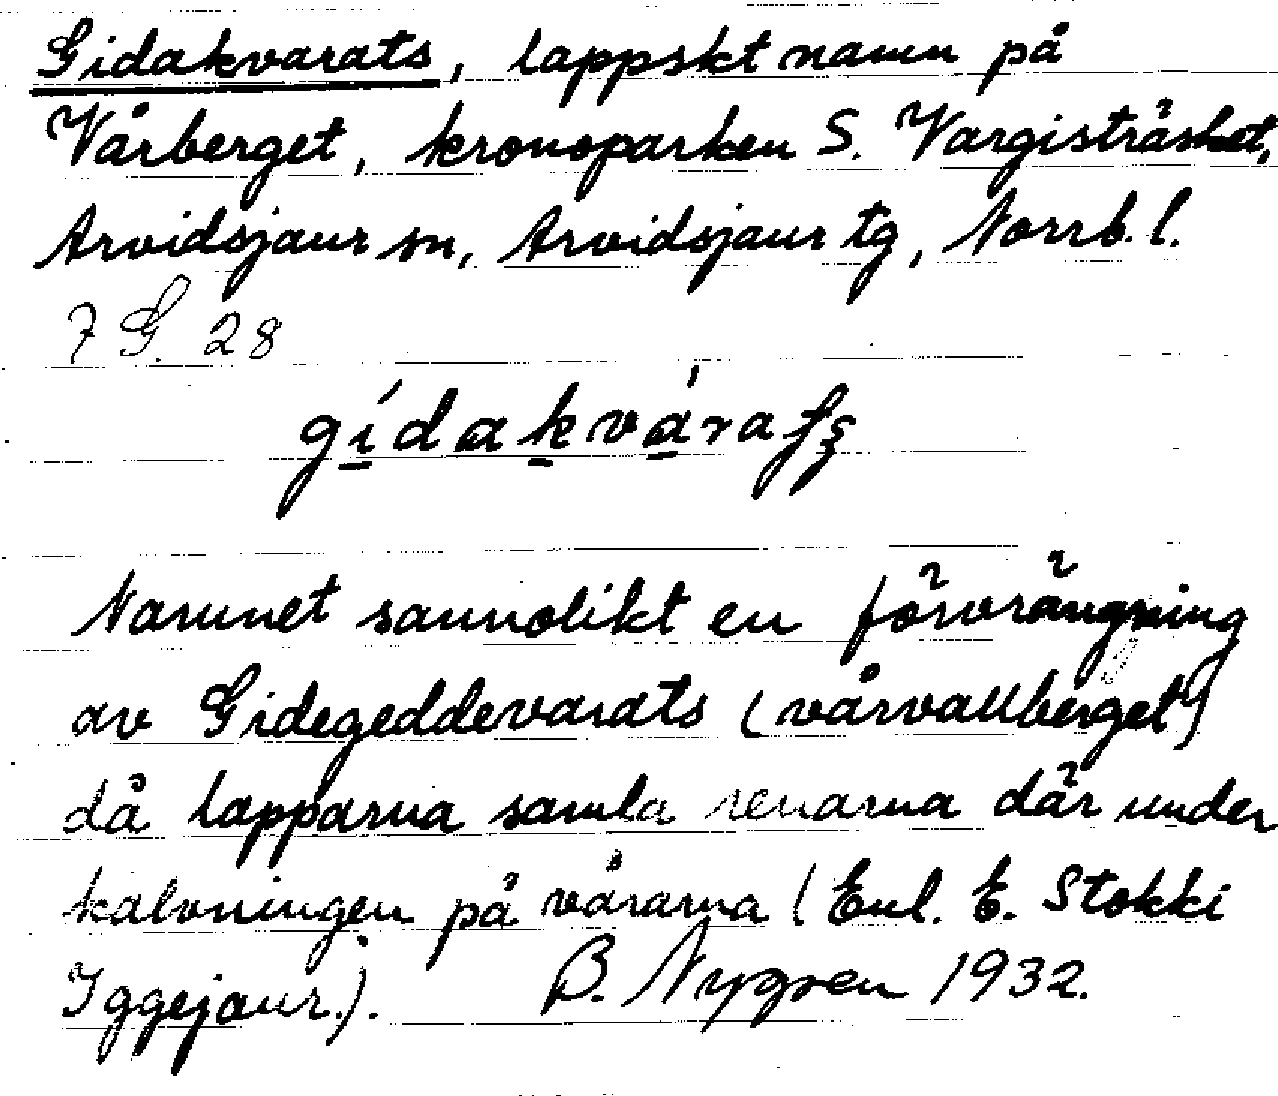 Gidakvarats, lappskt namn på
Vårberget, kronoparken S. Vargisträsket,
Arvidsjaur sn, Arvidsjaur tg, Norrb. l.
7 G. 28
gídakváraʃʂ
Namnet sannolikt en förvrängning
av Gidegeddevarats (vårvallberget)
då lapparna samla renarna där under
kalvningen på vårarna (Enl. E. Stokki
Iggejaur.). B. Nygren 1932.